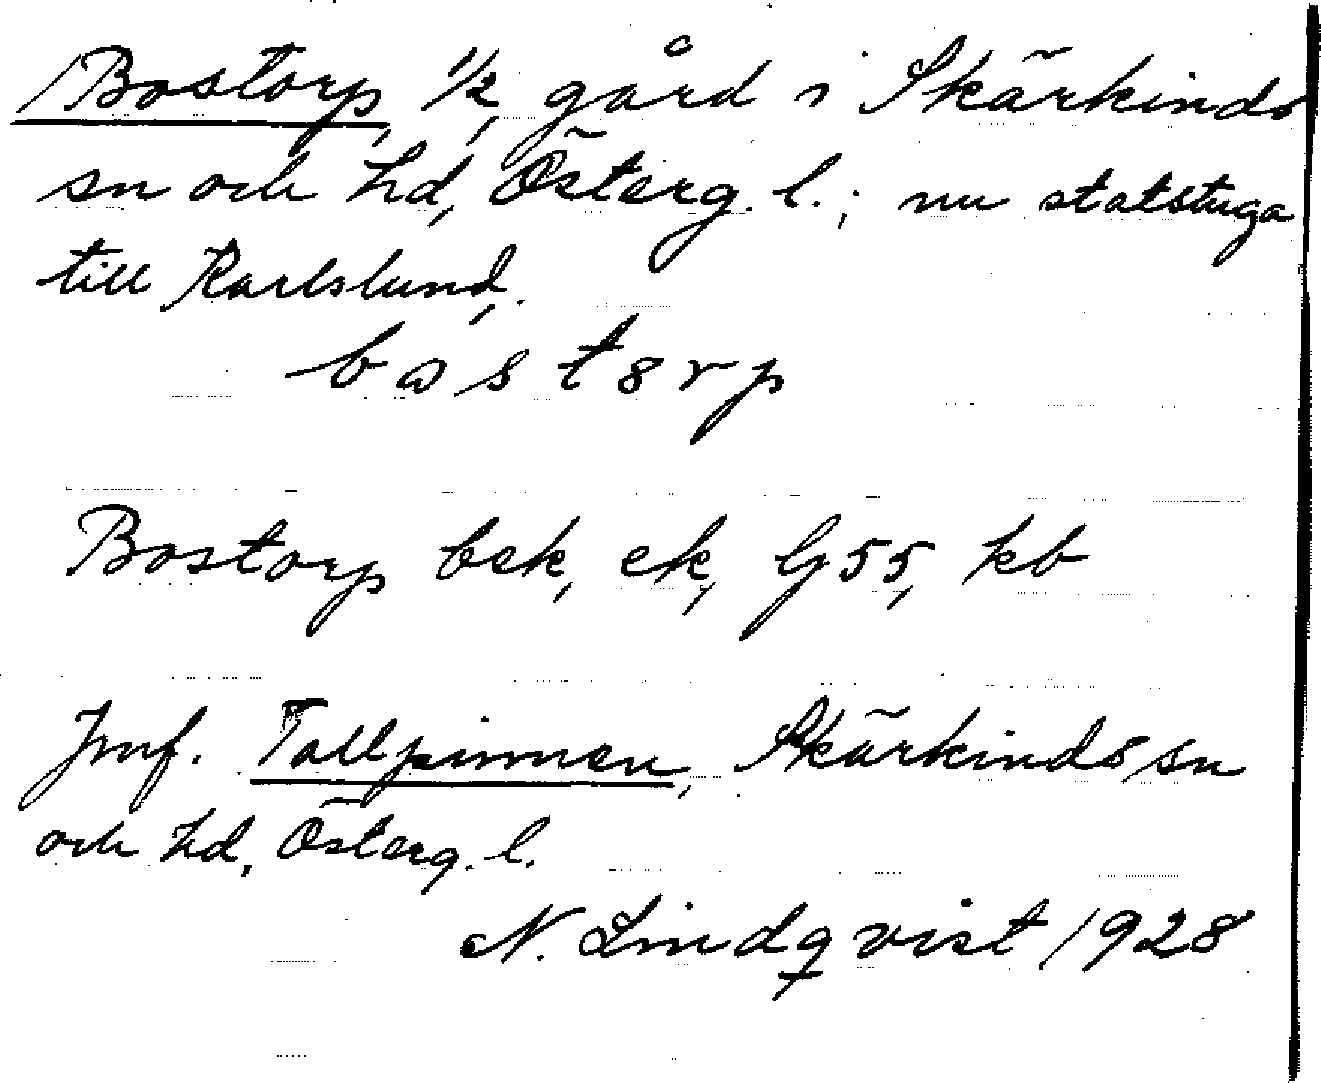 Bostorp, 1/2 gård i Skärkinds
sn och hd, Österg. l.; nu statstuga
till Karlslund.
bωstorp
Bostorp bek, ek, Gj 55, kb
Jmf. Tallpinnen, Skärkinds sn
och hd, Österg. l.
N. Lindqvist 1928